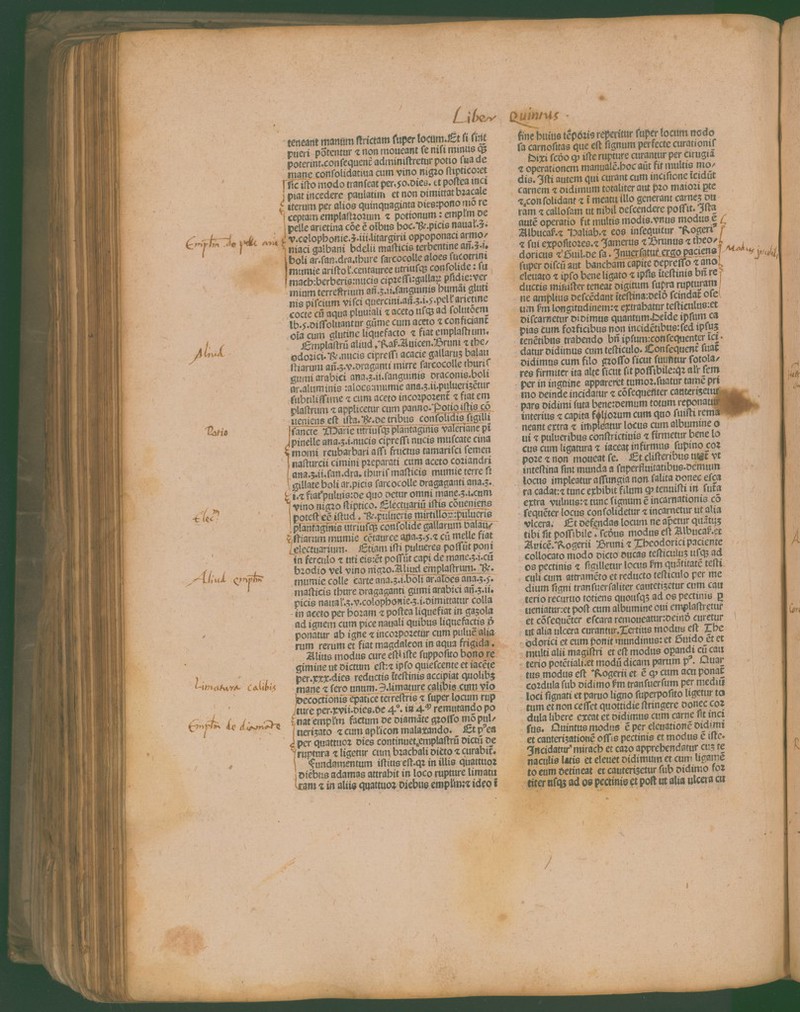 Liber Quintus.
teneant manum strictam super locum. Et si sint
pueri portentur ⁊ non moueant se nisi minus qͣ
poterint. consequent̄ administretur potio sua de
mane consolidatiua cum vino nigro stiptico: et
sic isto modo transeat per .50. dies. et postea inci
piat incedere paulatim et non dimittat bracale
iterum per alios quinquaginta dies: pono mō re
ceptam emplastrorum ⁊ potionum: emplm̄ de
pelle arietina cōe ē oībus hoc. ℞. picis naual̓.ʒ.
v. colophonie.ʒ.iii. litargirii oppoponaci armo/
niaci galbani bdelii masticis terbentine an̄.ʒ.i.
boli ar. san. dra. thure sarcocolle aloes sucotrini
mumie aristol̓. centauree utriusqꝫ consolide: su
mach: berberis: nucis cipressi: gallaꝝ psidie: ver
mium terrestrium an̄.ʒ.ii. sanguinis humāi gluti
nis piscium visci quercini. an̄.ʒ.i.5. pell̓ arietine
cocte cū aqua pluuiali ⁊ aceto usqꝫ ad solutōem
lb.5. dissoluantur gūme cum aceto ⁊ conficiant̄
oīa cum glutine liquefacto ⁊ fiat emplastrum.
Emplastrū aliud. Raſ. Auicen. Bruni ⁊ the/
odorici. ℞. nucis cipressi acacie gallarum balau
stiarum an̄.ʒ.v. draganti mirre sarcocolle thuris
gumi arabici ana.ʒ.ii. sanguinis draconis. boli
ar. aluminis: aloes: mumie ana.ʒ.ii. puluerizētur
subtilissime ⁊ cum aceto incorporent̄ ⁊ fiat em
plastrum ⁊ applicetur cum panno. Potio istis cō
ueniens est ista. ℞. de tribus consolidis sigilli
sancte Marie utriusqꝫ plantaginis valeriane pī
pinelle ana.ʒ.i. nucis cipressi nucis muscate cina
momi reubarbari assi fructus tamarisci semen
nasturcii cimini preparati cum aceto coriandri
ana.ʒ.ii. san. dra. thuris masticis mumie terre si
gillate boli ar. picis sarcocolle dragaganti ana.ʒ.
i. ⁊ fiat puluis: de quo detur omni mane.ʒ.i. cum
vino nigro stiptico. Electuariū istis cōueniens
potest eē istud. ℞. pulueris mirtilloꝝ: pulueris
plantaginis utriusqꝫ consolide gallarum balau/
stiarum mumie cētauree ana.ʒ.5. ⁊ cū melle fiat
electuarium. Etiam isti pulueres possūt poni
in ferculo ⁊ uti eis: et possūt capi de mane.ʒ.i. cū
brodio vel vino nigro. Aliud emplastrum. ℞.
mumie colle carte ana.ʒ.i. boli ar. aloes ana.ʒ.5.
masticis thure dragaganti gumi arabici an̄.ʒ.ii.
picis naual̓.ʒ.v. colophonie.ʒ.i. dimittatur colla
in aceto per horam ⁊ postea liquefiat in gazola
ad ignem cum pice nauali quibus liquefactis p̄
ponatur ab igne ⁊ incorporetur cum puluē alia
rum rerum et fiat magdaleon in aqua frigida.
Alius modus cure est: iste supposito bono re
gimine ut dictum est: ⁊ ipso quiescente et iacēte
per .xxx. dies reductis intestinis accipiat quolibꝫ
mane ⁊ sero unum. ʒ. limature calibis cum vīo
decoctionis epatice terrestris ⁊ super locum rup
ture per .xvii. dies. de 4°. in 4ᵐ remutando po
nat emplm̄ factum de diamāte grosso mō pul/
uerizato ⁊ cum aplicon malaxando. Et p̄ea
per quattuor dies continuet emplastrū dictū de
ruptura ⁊ ligetur cum brachali dicto ⁊ curabit̄.
Fundamentum istius est. qꝛ in illis quattuor
diebus adamas attrahit in loco rupture limatu
ram ⁊ in aliis quattuor diebus emplm̄: ⁊ ideo ī
Emplm̄ de pelle arie
Aliud
Potio
Elect̄
Aliud emplm̄
Limatura calibis
Emplm̄ de diamāte
fine huius tēporis reperitur super locum nodo
sa carnositas que est signum perfecte curationis
Dixi scd̄o ꝙ iste rupture curantur per cirugiā
⁊ operationem manualē. hoc aūt fit multis mo/
dis. Isti autem qui curant cum incisione īcidūt
carnem ⁊ didimum totaliter aut pro maiori pte
⁊ consolidant ⁊ ī meatu illo generant carnem du
ram ⁊ callosam ut nihil descendere possit. Ista
autē operatio fit multis modis. vnus modus ē
Albucaſ. ⁊ Haliab. ⁊ eos insequitur Rogeri⁹
⁊ sui expositores. ⁊ Jamerus ⁊ Brunus ⁊ theo/
doricus ⁊ Guil. de sa. Inuersatur ergo paciens
super discū aut bancham capite depresso ⁊ ano
eleuato ⁊ ipso bene ligato ⁊ ipsis ītestinis bn̄ re
ductis minister teneat digitum supra rupturam
ne amplius descēdant ītestina: deīn̄ scindat̄ ose
um ẜm longitudinem: ⁊ extrahatur testiculus: et
discarnetur didimus quantum. Deide ipsum ca
pias cum forficibus non incidētibus: sed ipsum
tenētibus trahendo bn̄ ipsum: consequenter ici
datur didimus cum testiculo. Consequent̄ suat̄
didimus cum filo grosso sicut suūtur sotola/
res firmiter ita alte sicut sit possibile: qꝛ alr̄ sem
per in ingnine appareret tumor. suatur tamē pri
mo deinde incidatur ⁊ cōsequēter cauterizetur
pars didimi suta bene: demum totum reponatur
interius ⁊ capita filorum cum quo suisti rema
neant extra ⁊ impleatur locus cum albumine o
ui ⁊ pulueribus constrictiuis ⁊ firmetur bene lo
cus cum ligatura ⁊ iaceat infirmus supino cor
pore ⁊ non moueat se. Et clisteribus utat̄ ut
intestina sint munda a superfluitatibus. demum
locus impleatur assungia non salita donec esca
ra cadat: ⁊ tunc exhibit filum ꝙ tenuisti in suta
extra vulnus: ⁊ tunc signum ē incarnationis cō
sequēter locus consolidetur ⁊ incarnetur ut alia
vlcera. Et defendas locum ne apetur quātum
tibi sit possibile. Scd̄us modus est Albucaſ. et
Auicē. Rogerii Bruni ⁊ Theodorici paciente
collocato modo dicto ducas testiculum usqꝫ ad
os pectinis ⁊ sigilletur locus ẜm quātitatē testi
culi cum attramēto et reducto testiculo per me
dium signi transuersaliter cauterizetur cum cau
terio recurtio totiens quousqꝫ ad os pectinis ꝑ
ueniatur: et post cum albumine oui emplastretur
et cōsequēter escara remoueatur: deinō curetur
ut alia ulcera curantur. Tertius modus est The
odorici et cum ponit mundinus: et Guido ēt et
multi alii magistri et est modus opandi cū cau
terio potētiali. et modū dicam parum p⁹. Quar
tus modus est Rogerii et ē ꝙ cum acu ponat̄
cordula sub didimo ẜm transuersum per mediū
loci signati et paruo ligno superposito ligetur to
tum et non cesset quottidie stringere donec cor
dula libere exeat et didimus cum carne sit inci
sus. Quintus modus ē per eleuationē didimi
et cauterizationē ossis pectinis et modus ē iste.
Incidatur mirach et caro apprehendatur cum te
naculis latis et eleuet didimum et cum ligamē
to eum detineat et cauterizetur sub didimo for
titer usqꝫ ad os pectinis et post ut alia ulcera cu